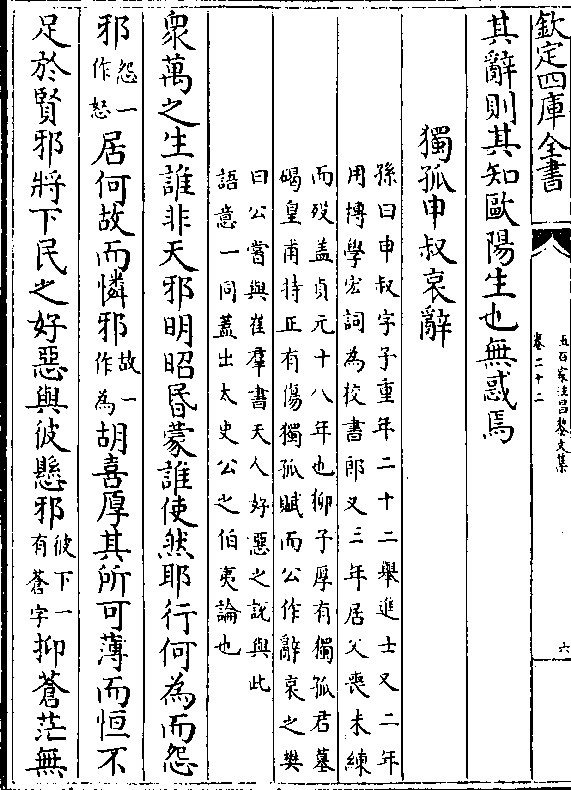 欽定四庫全書
五百家注昌黎文集
卷二十二
六
其辭則其知歐陽生也無惑焉
獨孤申叔哀辭
孫曰申叔字子重年二十二舉進士又二年
用博學宏詞為校書郎又三年居父喪未練
而殁盖貞元十八年也柳子厚有獨孤君墓
碣皇甫持正有傷獨孤賦而公作辭哀之樊
曰公嘗與崔羣書天人好惡之説與此
語意一同蓋出太史公之伯夷論也
衆萬之生誰非天邪明昭昬蒙誰使然耶行何為而怨
邪怨一作怒居何故而憐邪故一作為胡喜厚其所可薄而恒不
足於賢邪將下民之好惡與彼懸邪彼下一有蒼字抑蒼茫無